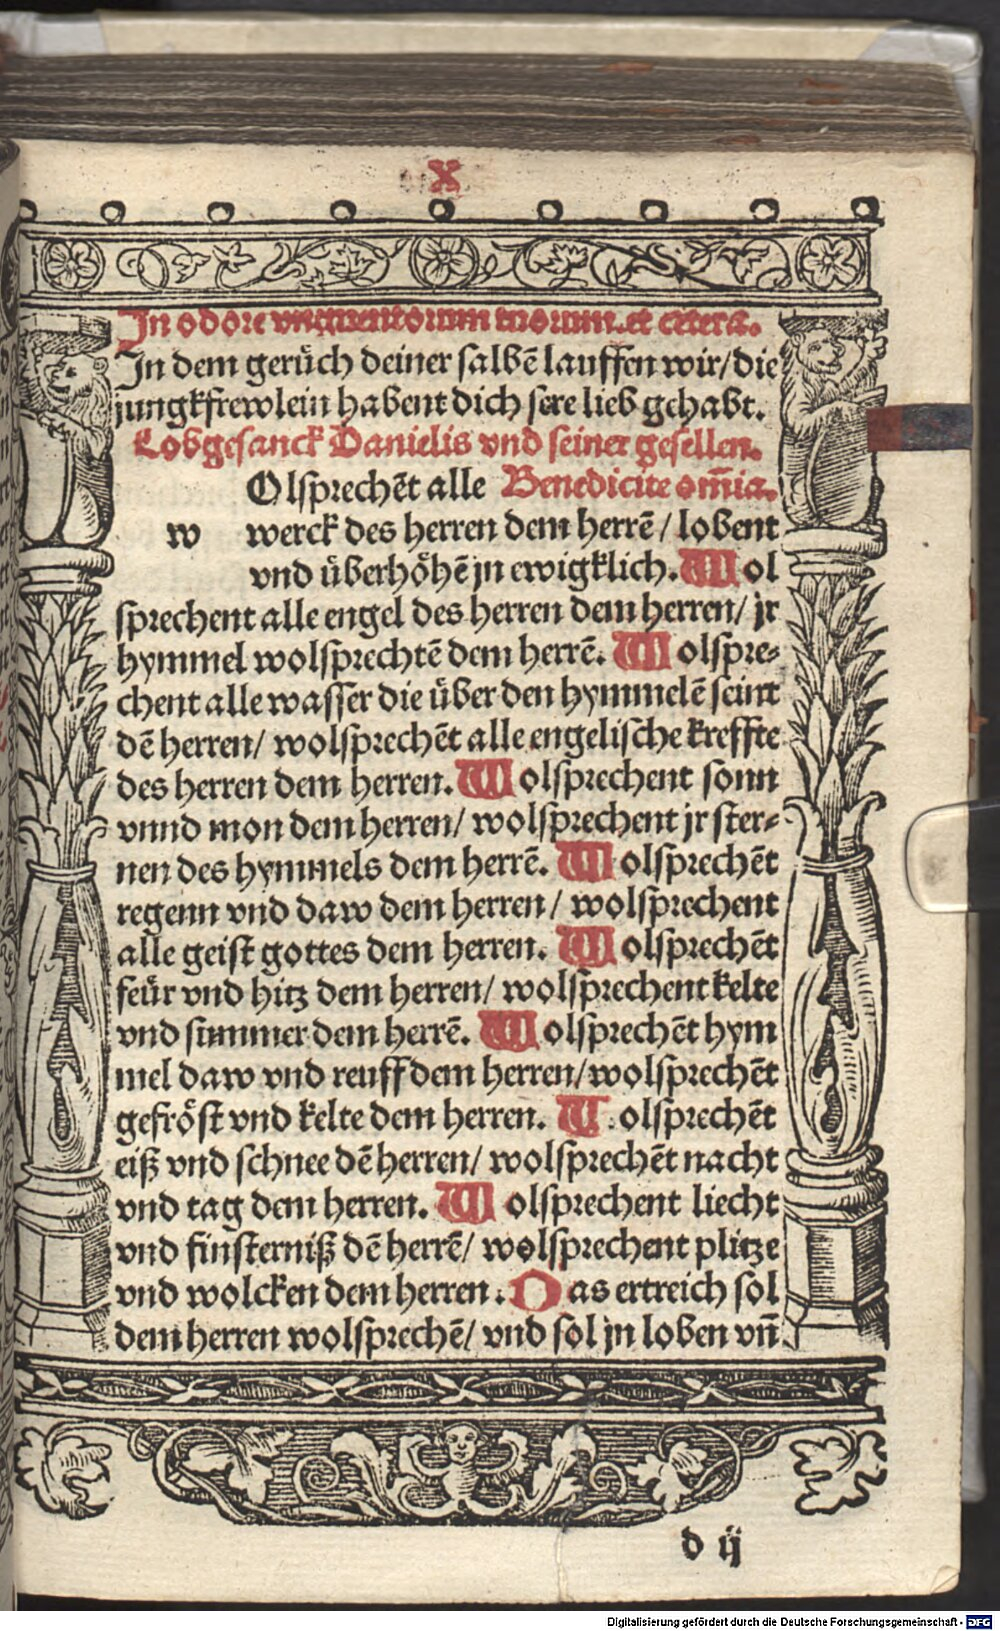 X
In odore vnguentorum tuorum. et cetera.
In dem gerůch deiner salbē lauffen wir/ die
jungkfrewlein habent dich sere lieb gehabt.
Lobgesanck Danielis vnd seiner gesellen.
Olsprechēt alle Benedicite om̄ia.
w werck des herren dem herrē / lobent
vnd überhöhē jn ewigklich. Wol
sprechent alle engel des herren dem herren/ jr
hymmel wolsprechtē dem herrē. Wolspre⸗
chent alle wasser die über den hymmelē seint
dē herren/ wolsprechēt alle engelische kreffte
des herren dem herren. Wolsprechent sonn
vnnd mon dem herren/ wolsprechent jr ster⸗
nen des hymmels dem herrē. Wolsprechēt
regenn vnd daw dem herren / wolsprechent
alle geist gottes dem herren. Wolsprechēt
feür vnd hitz dem herren/ wolsprechent kelte
vnd summer dem herrē. Wolsprechēt hym
mel daw vnd reuff dem herren/ wolsprechēt
gefröst vnd kelte dem herren. Wolsprechēt
eiß vnd schnee dē herren/ wolsprechēt nacht
vnd tag dem herren. Wolsprechent liecht
vnd finsterniß dē herrē/ wolsprechent plitze
vnd wolcken dem herren. Das ertreich sol
dem herren wolsprechē/ vnd sol jn loben vn̄
d ij
Digitalisierung gefördert durch die Deutsche Forschungsgemeinschaft - DFG